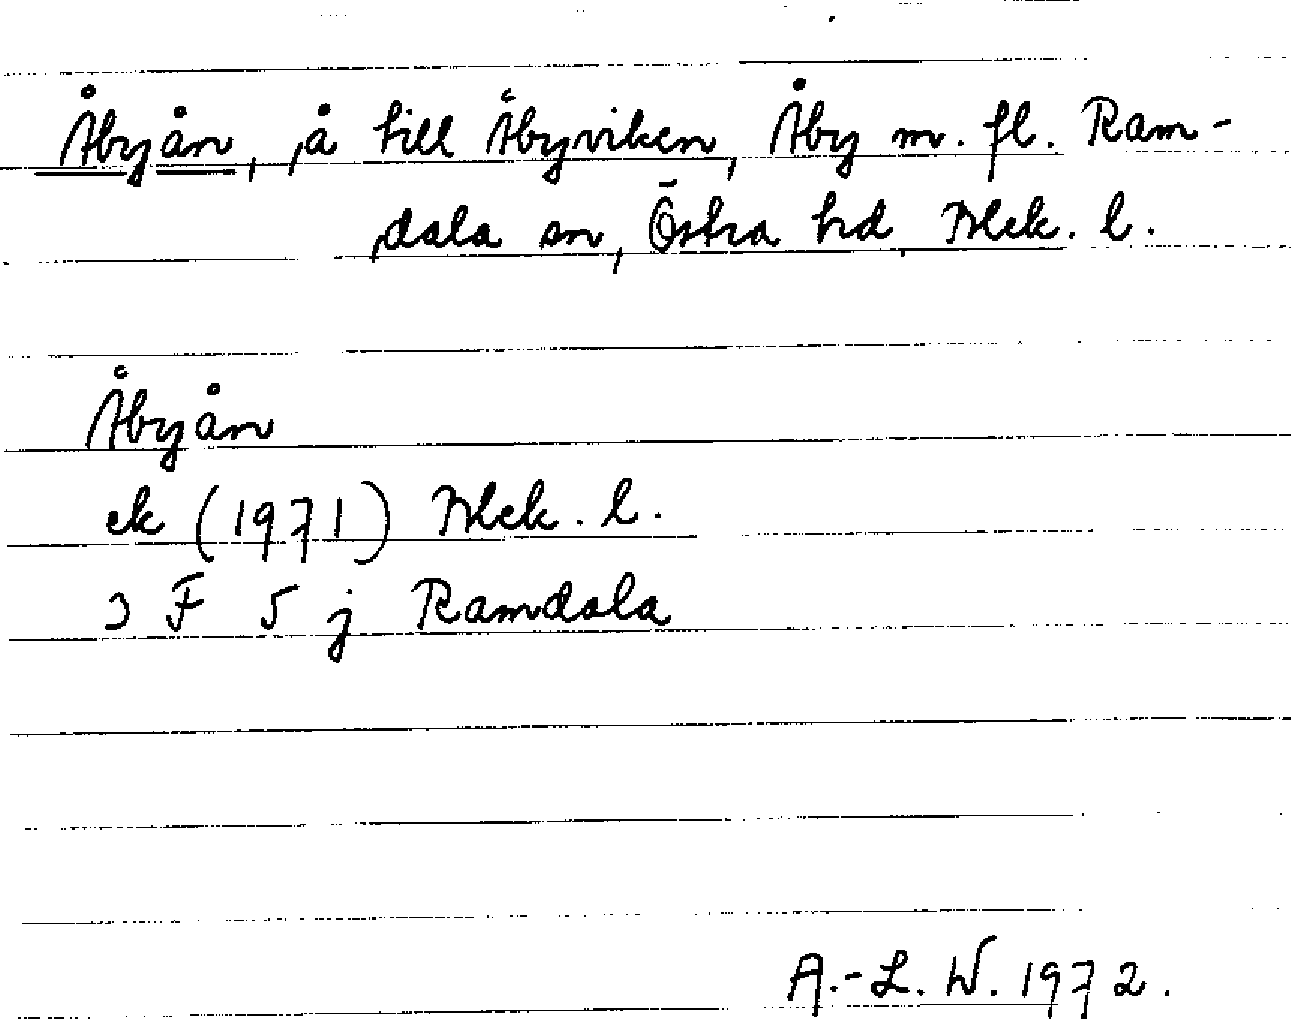 Åbyån, å till Åbyviken, Åby m. fl. Ram-
dala sn, Östra hd, Blek. l.
Åbyån
ek (1971) Blek. l.
3 F 5 j Ramdala
A.-L. W. 1972.